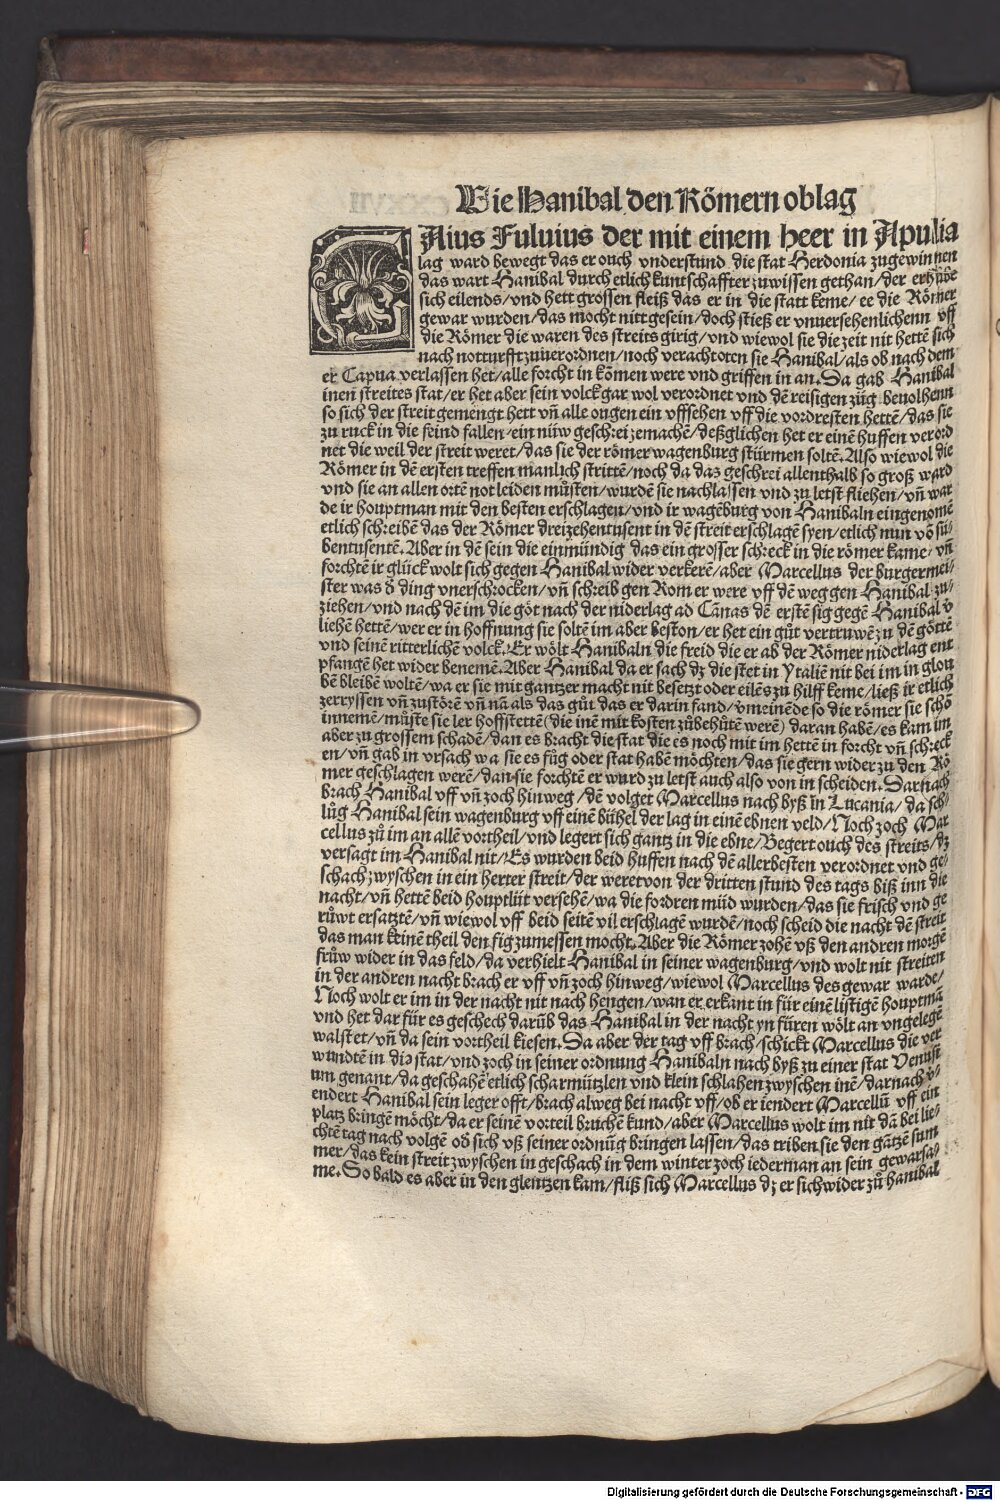 Wie Hanibal den Römern oblag
CAius Fuluius der mit einem heer in Apulia
lag ward bewegt das er ouch vnderstund die stat Herdonia zugewinnen
das wart Hanibal durch etlich kuntschaffter zuwissen gethan/der erhůbe
sich eilends/vnd hett grossen fleiß das er in die statt keme/ee die Römer
gewar wurden/das mocht nitt gesein/doch stieß er vnuersehenlichenn vff
die Römer die waren des streits girig/vnd wiewol sie die zeit nit hettē sich
nach notturfft zuuerordnen/noch verachtoten sie Hanibal/als ob nach dem
er Capua verlassen het/alle forcht in kōmen were vnd griffen in an. Da gab Hanibal
inen streites stat/er het aber sein volck gar wol verordnet vnd dē reisigen züg beuolhenn
so sich der streit gemengt hett vn̄ alle ougen ein vffsehen vff die vordresten hettē/das sie
zu ruck in die feind fallen/ein nüw geschrei zemachē/deßglichen het er einē huffen verord
net die weil der streit weret/das sie der römer wagenburg stürmen soltē. Also wiewol die
Römer in dē ersten treffen manlich strittē/noch da das geschrei allenthalb so groß ward
vnd sie an allen ortē not leiden můsten/wurdē sie nachlassen vnd zu letst fliehen/vn̄ war
de ir houptman mit den besten erschlagen/vnd ir wagēburg von Hanibaln eingenomē
etlich schreibē das der Römer dreizehentusent in dē streit erschlagē syen/etlich nun vō sü-
bentusentē. Aber in dē sein die einmündig das ein grosser schreck in die römer kame/vn̄
forchtē ir glück wolt sich gegen Hanibal wider verkerē/aber Marcellus der burgermei-
ster was d̄ ding vnerschrocken/vn̄ schreib gen Rom er were vff dē weg gen Hanibal zu-
ziehen/vnd nach dē im die göt nach der niderlag ad Cānas dē erstē sig gegē Hanibal v̄
liehē hettē/wer er in hoffnung sie soltē im aber beston/er het ein gůt vertruwē zu dē göttē
vnd seinē ritterlichē volck. Er wölt Hanibaln die freid die er ab der Römer niderlag ent
pfangē het wider benemē. Aber Hanibal da er sach dz die stet in Ytaliē nit bei im in glou
bē bleibē woltē/wa er sie mit gantzer macht nit besetzt oder eilēs zu hilff keme/ließ ir etlich
zerryssen vn̄ zustörē vn̄ nā als das gůt das er darin fand/v̄meinēde so die römer sie schō
innemē/můste sie ler hoffstettē (die inē mit kosten zůbehůtē werē) daran habē/es kam im
aber zu grossem schadē/dan es bracht die stat die es noch mit im hettē in forcht vn̄ schreck
en/vn̄ gab in vrsach wa sie es fůg oder stat habē möchten/das sie gern wider zu den Rö
mer geschlagen werē/dan sie forchtē er wurd zu letst auch also von in scheiden. Darnach
brach Hanibal vff vn̄ zoch hinweg/dē volget Marcellus nach byß in Lucania/da sch-
lůg Hanibal sein wagenburg vff einē bühel der lag in einē ebnen veld/Noch zoch Mar
cellus zů im an allē vortheil/vnd legert sich gantz in die ebne/Begert ouch des streits/dz
versagt im Hanibal nit/Es wurden beid huffen nach dē allerbesten verordnet vnd ge-
schach zwyschen in ein herter streit/der weret von der dritten stund des tags biß inn die
nacht/vn̄ hettē beid houptlüt versehē/wa die fordren müd wurden/das sie frisch vnd ge
růwt ersatztē/vn̄ wiewol vff beid seitē vil erschlagē wurdē/noch scheid die nacht dē streit
das man keinē theil den sig zumessen mocht. Aber die Römer zohē vß den andren morgē
frůw wider in das feld/da verhielt Hanibal in seiner wagenburg/vnd wolt nit streiten
in der andren nacht brach er vff vn̄ zoch hinweg/wiewol Marcellus des gewar warde/
Noch wolt er im in der nacht nit nach hengen/wan er erkant in für einē listigē houptmā
vnd het dar für es geschech darūb das Hanibal in der nacht yn füren wölt an vngelegē
walstet/vn̄ da sein vortheil kiesen. Da aber der tag vff brach/schickt Marcellus die ver
wundtē in die stat/vnd zoch in seiner ordnung Hanibaln nach byß zu einer stat Venusi
um genant/da geschahē etlich scharmützlen vnd klein schlahen zwyschen inē/darnach v̄-
endert Hanibal sein leger offt/brach alweg bei nacht vff/ob er iendert Marcellū vff ein
platz bringē möcht/da er seinē vorteil bruchē kund/aber Marcellus wolt im nit dā bei lie-
chtē tag nach volgē od̄ sich vß seiner ordnūg bringen lassen/das triben sie den gātzē sum
mer/das kein streit zwyschen in geschach in dem winter zoch iederman an sein gewarsa-
me. So bald es aber in den glentzen kam/fliß sich Marcellus dz er sich wider zů hanibal
Digitalisierung gefördert durch die Deutsche Forschungsgemeinschaft - DFG